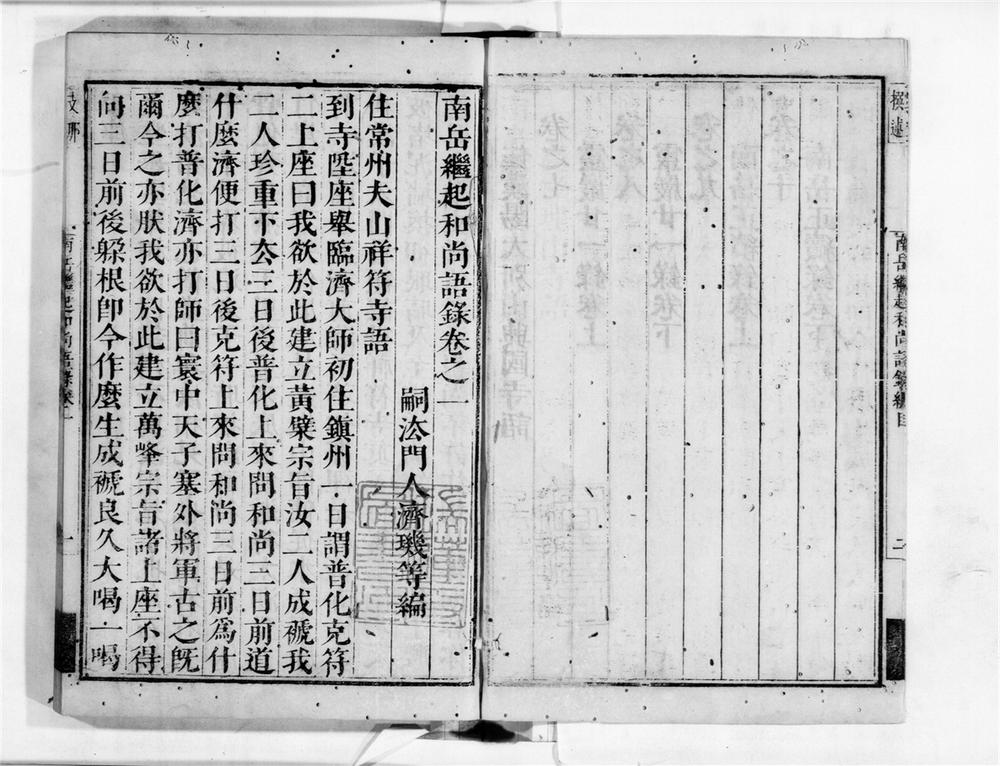 撰述
南岳繼起和尚語錄總目
二
南岳繼起和尚語錄卷之一
嗣法門人濟璣等編
住常州夫山祥符寺語
到寺陞座舉臨濟大師初住鎮州一日謂普化克符
二上座曰我欲於此建立黃檗宗旨汝二人成褫我
二人珍重下去三日後普化上來問和尚三日前道
什麼濟便打三日後克符上來問和尚三日前為什
麼打普化濟亦打師曰寰中天子塞外將軍古之既
爾今之亦肰我欲於此建立萬峰宗旨諸上座不得
向三日前後躲根卽今作麼生成褫良久大喝一喝